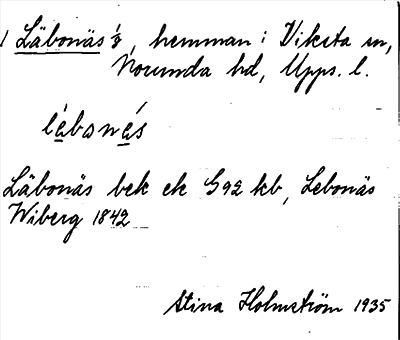 1 Läbonäs 1/8, hemman i Viksta sn,
Norunda hd, Upps. l.
lȧbonȧs
Läbonäs bek ek G92 kb, Lebonäs
Wiberg 1842
Stina Holmström 1935